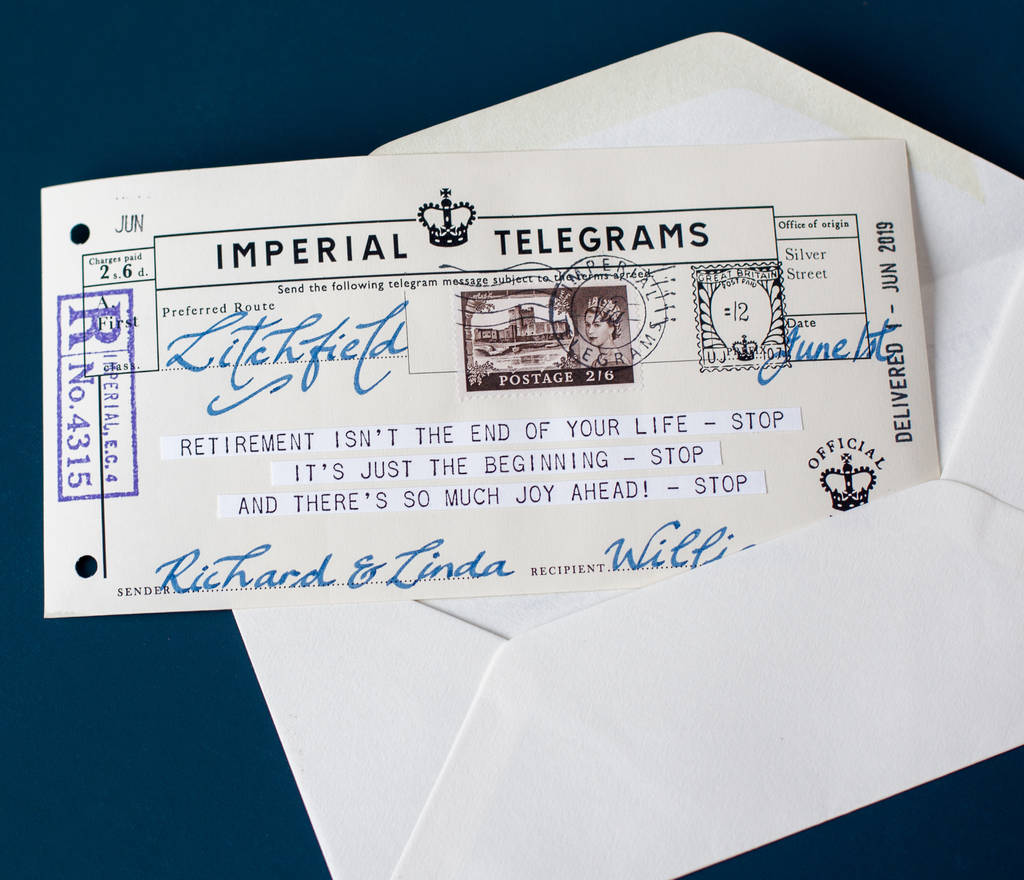 JUN
IMPERIAL TELEGRAMS
Send the following telegram message subject to the terms agreed.
Charges paid
2 s. 6 d.
A.
First
class.
Preferred Route
Litchfield
Office of origin
Silver
Street
Date
June 1st
POSTAGE 2/6
IMPERIAL
TELEGRAMS
GREAT BRITAIN
POST PAID
=12
DELIVERED - JUN 2019
R
No. 4315
IMPERIAL, E.C. 4
RETIREMENT ISN'T THE END OF YOUR LIFE – STOP
IT'S JUST THE BEGINNING – STOP
AND THERE'S SO MUCH JOY AHEAD! – STOP
OFFICIAL
SENDER Richard & Linda RECIPIENT